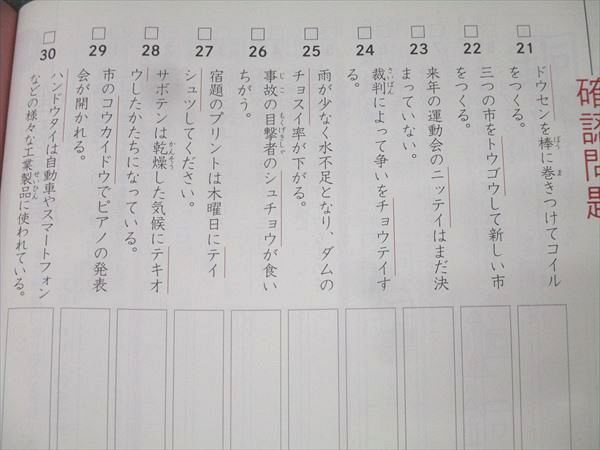 確認問題
21
ドウセンを棒に巻きつけてコイル
をつくる。
22
三つの市をトウゴウして新しい市
をつくる。
23
来年の運動会のニッテイはまだ決
まっていない。
24
裁判によって争いをチョウテイす
る。
25
雨が少なく水不足となり、ダムの
チョスイ率が下がる。
26
事故の目撃者のシュチョウが食い
ちがう。
27
宿題のプリントは木曜日にテイ
シュツしてください。
28
サボテンは乾燥した気候にテキオ
ウしたかたちになっている。
29
市のコウカイドウでピアノの発表
会が開かれる。
30
ハンドウタイは自動車やスマートフォン
などの様々な工業製品に使われている。